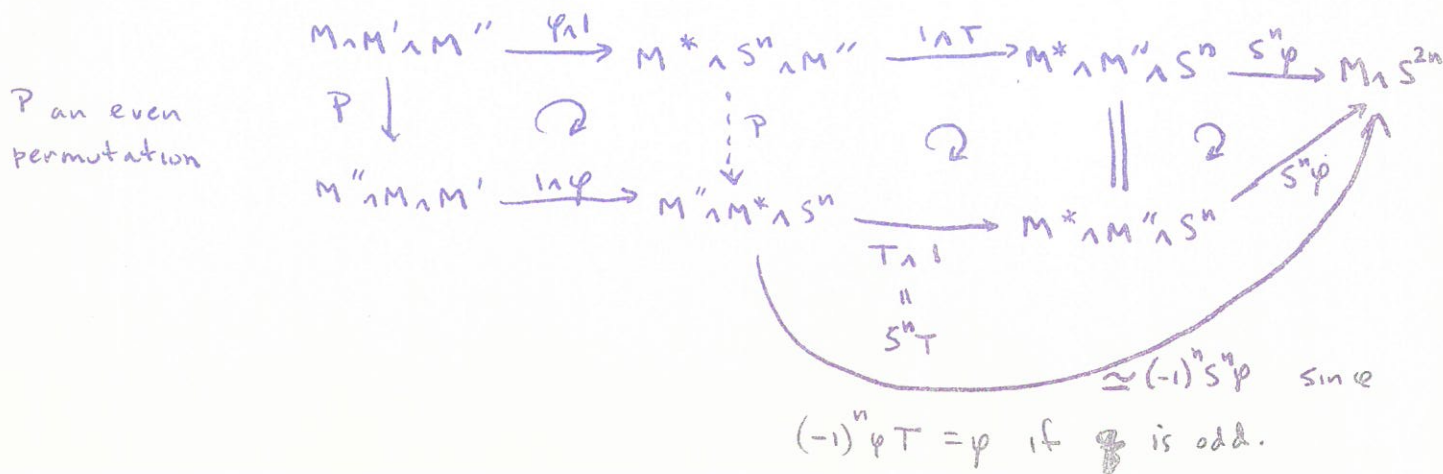 M∧M'∧M'' φ∧1 M*∧Sⁿ∧M'' 1∧T M*∧M''∧Sⁿ Sⁿφ M∧S²ⁿ
P an even
permutation
P P
M''∧M∧M' 1∧φ M''∧M*∧Sⁿ T∧1 M*∧M''∧Sⁿ Sⁿφ
=
SⁿT
≃(-1)ⁿSⁿφ since
(-1)ⁿφT = φ if q is odd.